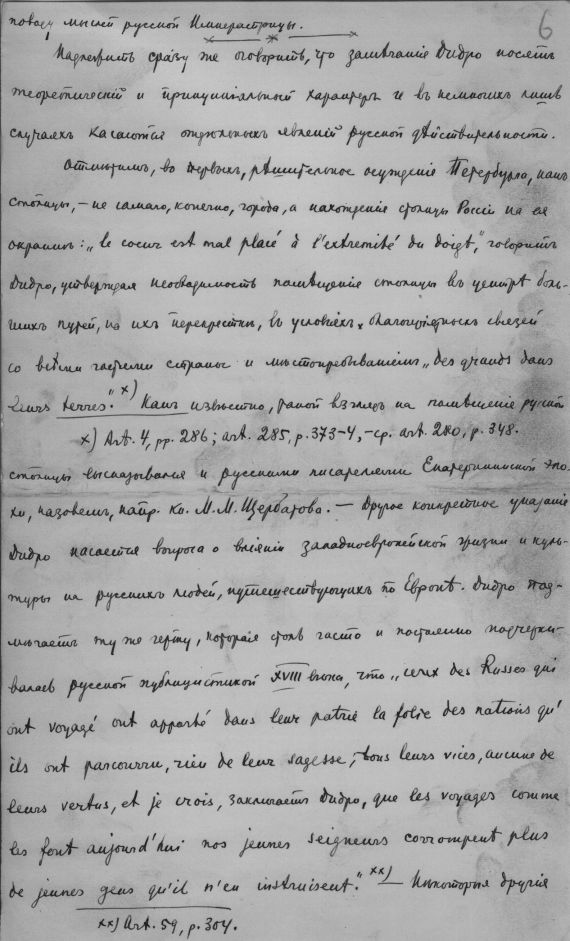 6
поводу мыслей русской Императрицы.
Надлежитъ сразу же оговорить, что замѣчанія Дидро носятъ
теоретическій и принципіальный характеръ и въ немногихъ лишь
случаяхъ касаются отдѣльныхъ явленій русской дѣйствительности.
Отмѣтимъ, во первыхъ, рѣшительное осужденіе Петербурга, какъ
столицы, – не самаго, конечно, города, а нахожденія столицы Россіи на ея
окраинѣ: „le coeur est mal placé à l'extremité du doigt", говоритъ
Дидро, утверждая необходимость помѣщенія столицы въ центрѣ боль-
шихъ путей, на ихъ перекресткѣ, въ условіяхъ благопріятныхъ связей
со всѣми частями страны и мѣстопребываніемъ „des grands dans
leurs terres." x) Какъ извѣстно, такой взглядъ на помѣщеніе русской
x) Art. 4, pp. 286; art. 285, p. 373-4, – ср. art. 280, p. 348.
столицы высказывался и русскими писателями Екатерининской эпо-
хи, назовемъ, напр. кн. М. М. Щербатова. — Другое конкретное указаніе
Дидро касается вопроса о вліяніи западноевропейской жизни и куль-
туры на русскихъ людей, путешествующихъ по Европѣ. Дидро под-
мѣчаетъ ту же черту, которая столь часто и настойчиво подчерки-
валась русской публицистикой XVIII вѣка, что „ceux des Russes qui
ont voyagé ont apporté dans leur patrie la folie des nations qu'
ils ont parcourru, rien de leur sagesse, tous leurs vices, aucune de
leurs vertus, et je crois, заключаетъ Дидро, que les voyages comme
les font aujourd'hui nos jeunes seigneurs corrompent plus
de jeunes gens qu'il n'en instruisent." xx) — Нѣкоторыя другія
xx) Art. 59, p. 304.